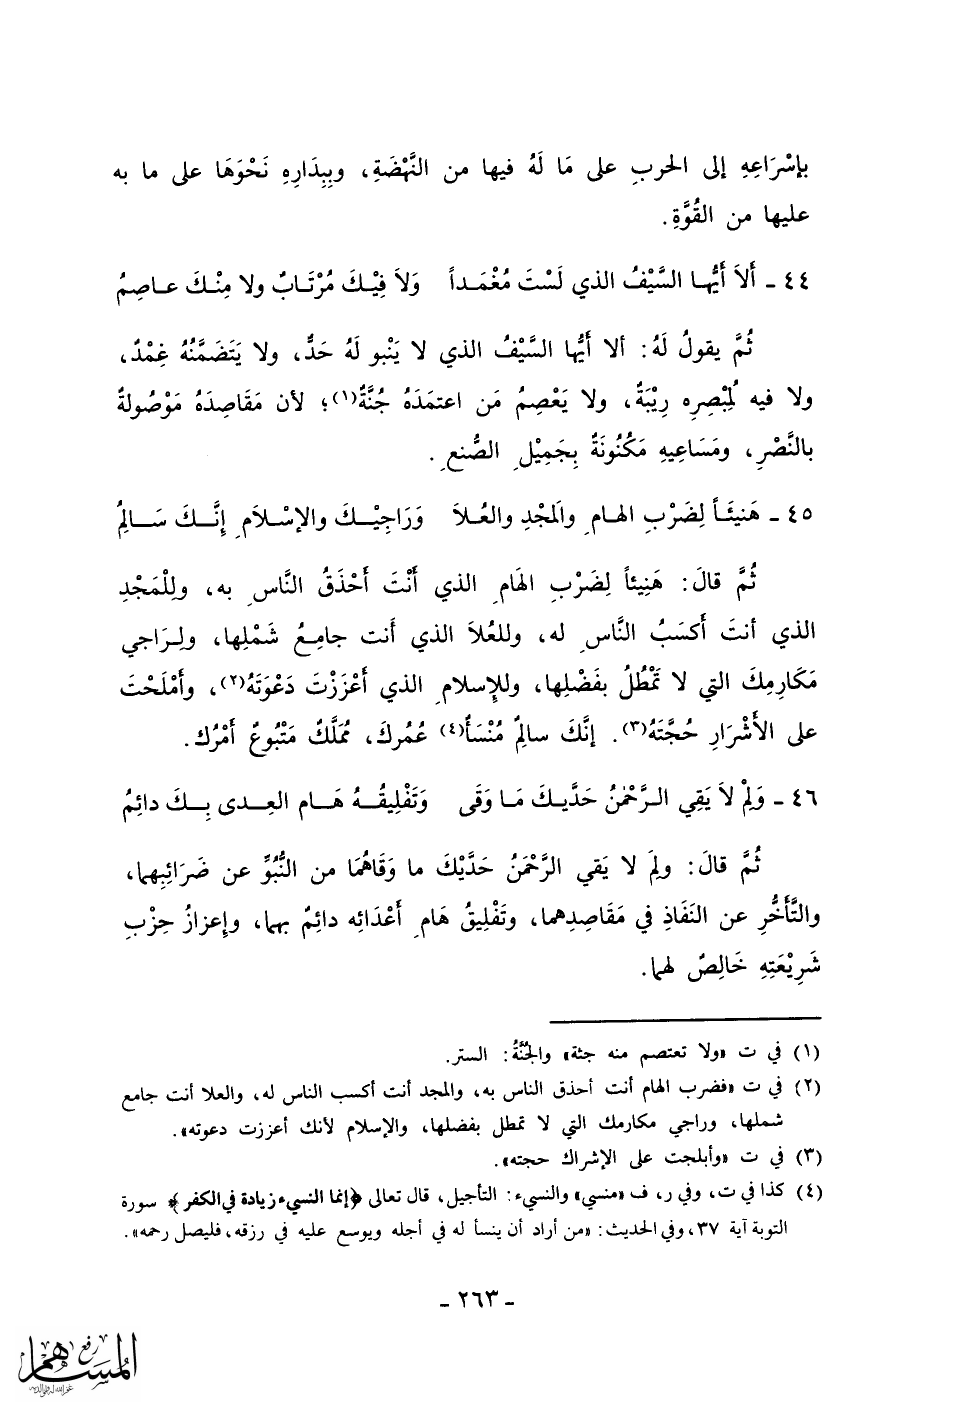 بإسْرَاعِهِ إلى الحربِ على مَا لَهُ فيها من النَّهْضَةِ، وبِبِدَارِهِ نَحْوَهَا على ما به
عليها من القُوَّةِ.
٤٤ - ألاَ أَيُّها السَّيْفُ الذي لَسْتَ مُغْمَداً    وَلاَ فِيْكَ مُرْتَابٌ ولا مِنْكَ عاصِمُ
ثُمَّ يقولُ لَهُ: ألا أَيُّها السَّيْفُ الذي لا يَنْبو لَهُ حَدٌّ، ولا يَتَضَمَّنُهُ غِمْدٌ،
ولا فيه لِمُبْصِرِه رِيْبَةٌ، ولا يَعْصِمُ مَن اعتمَدَهُ جُنَّةٌ(١)؛ لأن مَقَاصِدَهُ مَوْصُولةٌ
بالنَّصْرِ، ومَسَاعِيهِ مَكْنُونَةٌ بِجَمِيْلِ الصُّنعِ.
٤٥ - هَنيئَاً لِضَرْبِ الهامِ والمَجْدِ والعُلاَ    وَرَاجِيْكَ والإسْلاَمِ إنَّكَ سَالِمُ
ثُمَّ قالَ: هَنِيئاً لِضَرْبِ الهَامِ الذي أَنْتَ أَحْذَقُ النَّاسِ به، ولِلْمَجْدِ
الذي أنتَ أَكسَبُ النَّاسِ له، وللعُلاَ الذي أَنت جامِعُ شَمْلِها، ولِرَاجي
مَكَارِمِكَ التي لا تَمْطُلُ بفَضْلِها، وللإِسلامِ الذي أَعْزَزْتَ دَعْوَتَهُ(٢)، وأَمْلَحْتَ
على الأَشْرَارِ حُجَّتَهُ(٣). إنَّكَ سالِمٌ مُنْسَأٌ(٤) عُمُركَ، مُمَلَّكٌ مَتْبُوعٌ أَمْرُك.
٤٦ - وَلِمْ لاَ يَقِي الرَّحْمٰنُ حَدَّيكَ مَا وَقَى    وَتَفْلِيقُهُ هَام العِدى بِكَ دائِمُ
ثُمَّ قالَ: ولِمَ لا يَقي الرَّحْمَنُ حَدَّيْكَ ما وَقَاهُمَا من النُّبُوِّ عن ضَرَائِبِهما،
والتَّأَخُّرِ عن النَفَاذِ في مَقَاصِدِهما، وتَفْلِيقُ هَامِ أَعْدَائِه دائِمٌ بهما، وإعزازُ حِزْبِ
شَرِيْعَتِهِ خَالِصٌ لهما.
(١) في ت «ولا تعتصم منه جثة» والجُنَّةُ: الستر.
(٢) في ت «فضرب الهام أنت أحذق الناس به، والمجد أنت أكسب الناس له، والعلا أنت جامع
شملها، وراجي مكارمك التي لا تمطل بفضلها، والإسلام لأنك أعززت دعوته».
(٣) في ت «وأبلجت على الإشراك حجته».
(٤) كذا في ت، وفي ر، ف «منسي» والنسيء: التأجيل، قال تعالى ﴿إنما النسيء زيادة في الكفر﴾ سورة
التوبة آية ٣٧، وفي الحديث: «من أراد أن ينسأ له في أجله ويوسع عليه في رزقه، فليصل رحمه».
- ٢٦٣ -
رفع
المساهم